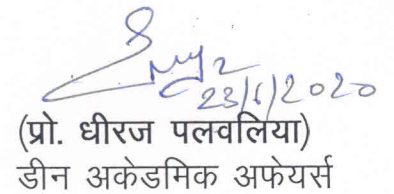 23/6/2020
(प्रो. धीरज पलवलिया)
डीन अकेडमिक अफेयर्स